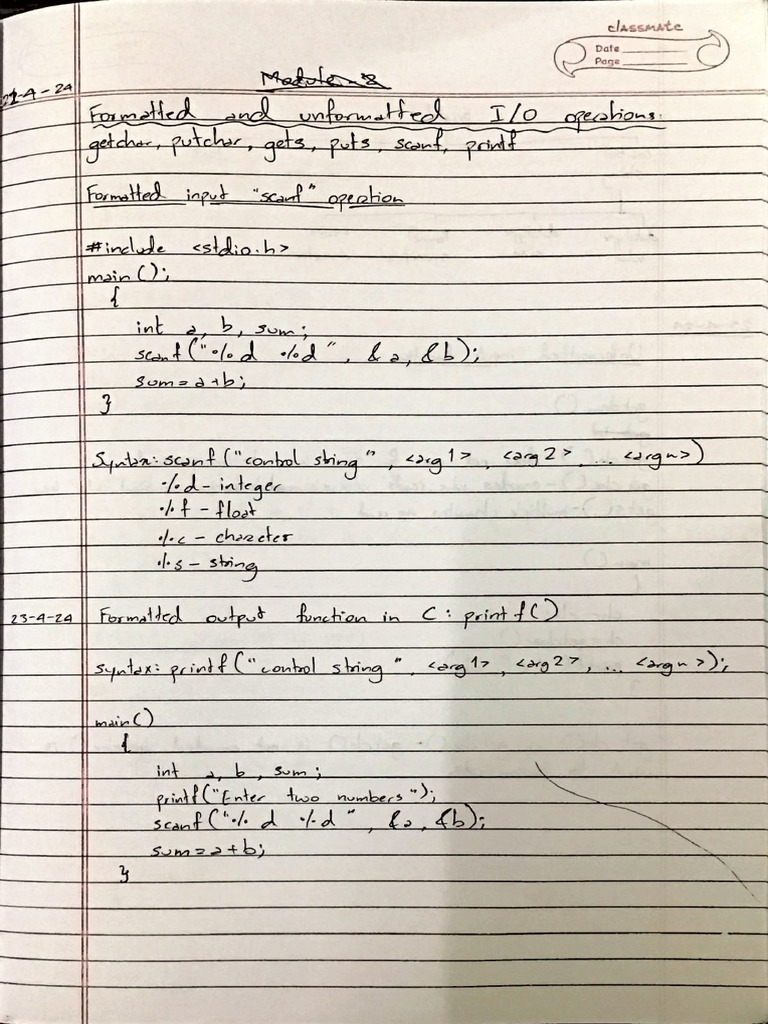 classmate
Date
Page
Module-2
21-4-24
Formatted and unformatted I/O operations:
getchar, putchar, gets, puts, scanf, printf
Formatted input "scanf" operation
#include <stdio.h>
main();
{
int a, b, sum;
scanf("%d %d", &a, &b);
sum=a+b;
}
Syntax: scanf("control string", <arg1>, <arg2>, ... <argn>)
%d - integer
%f - float
%c - character
%s - string
23-4-24 Formatted output function in C: printf()
syntax: printf("control string", <arg1>, <arg2>, ... <argn>);
main()
{
int a, b, sum;
printf("Enter two numbers");
scanf("%d %d", &a, &b);
sum=a+b;
}